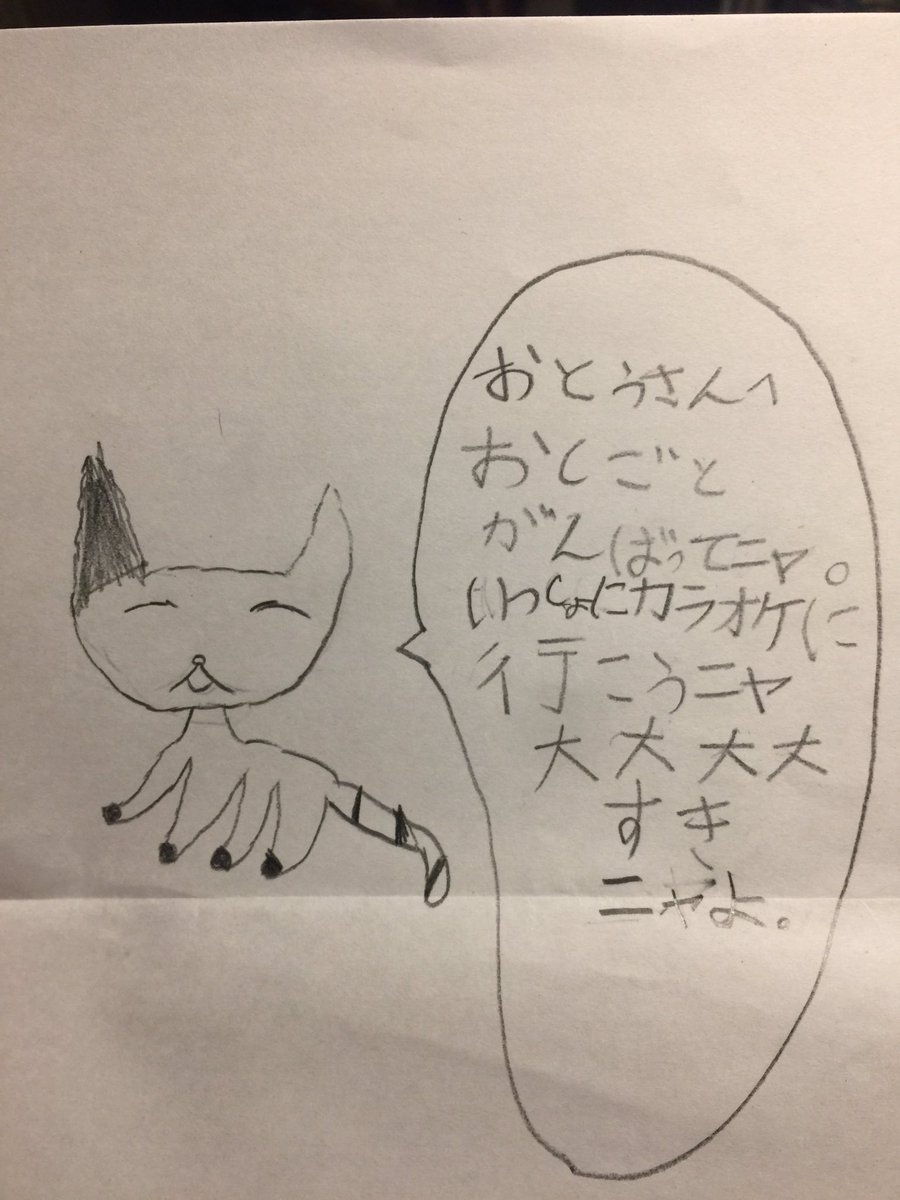 おとうさんへ
おしごと
がんばってニャ。
いっしょにカラオケに
行こうニャ
大大大大
すき
ニャよ。